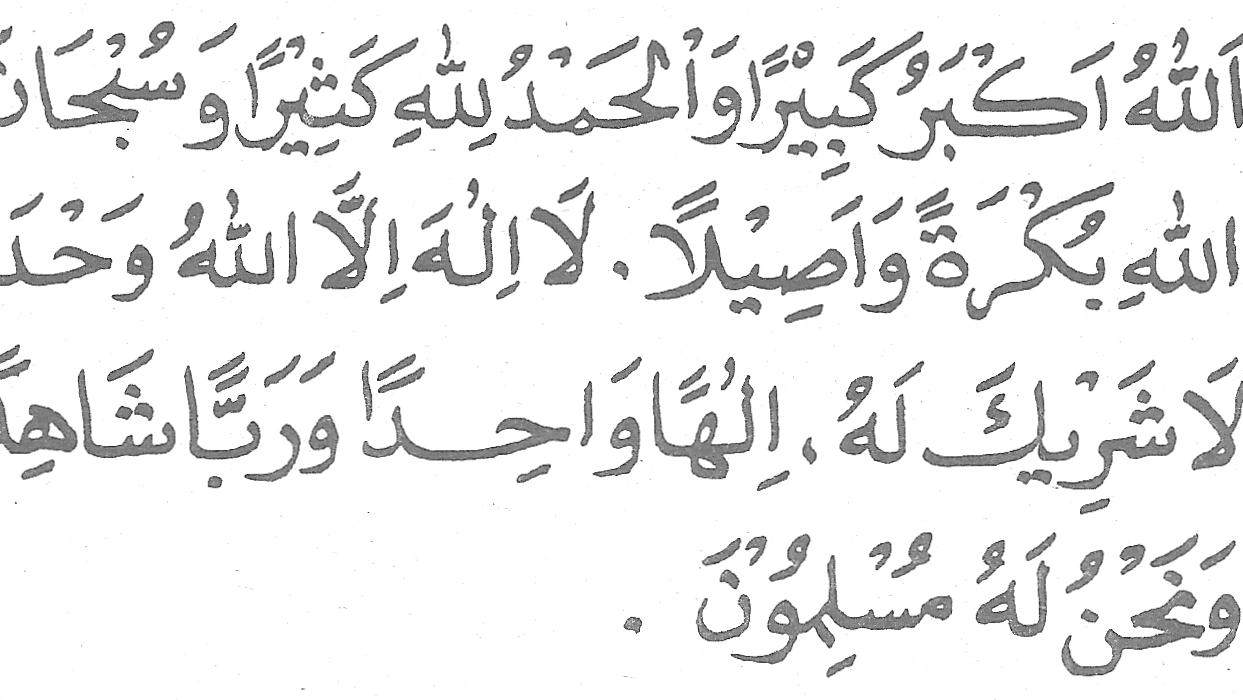 اَللّٰهُ اَكْبَرُ كَبِيْرًا وَالْحَمْدُ لِلّٰهِ كَثِيْرًا وَ سُبْحَانَ
اللّٰهِ بُكْرَةً وَاَصِيْلًا . لَا اِلٰهَ اِلَّا اللّٰهُ وَحْدَ
لَا شَرِيْكَ لَهُ ، اِلٰهًا وَاحِدًا وَرَبًّا شَاهِدً
وَنَحْنُ لَهُ مُسْلِمُوْنَ .